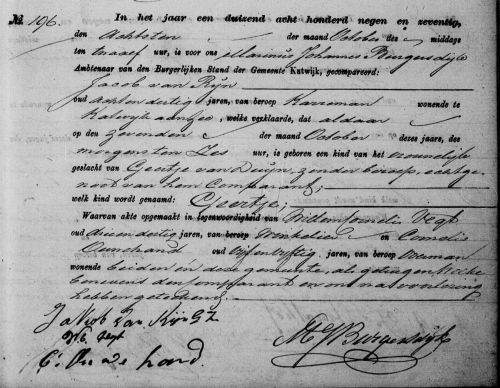 № 196.
In het jaar een duizend acht honderd negen en zeventig,
den Achtsten der maand October des middags
ten twaalf uur, is voor ons Marinus Johannes Burgersdijk
Ambtenaar van den Burgerlijken Stand der Gemeente Katwijk, gecompareerd:
Jacob van Rijn
oud achtendertig jaren, van beroep wonende te
Katwijk aan Zee, welke verklaarde, dat aldaar
op den zevenden der maand October dezes jaars, des
morgens ten zes uur, is geboren een kind van het vrouwelijk
geslacht van Geertje van Duijn, zonder beroep, echtge-
noot van hem Comparant,
welk kind wordt genaamd: Geertje;
Waarvan akte opgemaakt in tegenwoordigheid van Willem Cornelis Vegt
oud jaren, van beroep Winkelier en Cornelis
Ouwehand oud vijfenvijftig jaren, van beroep Voerman
wonende beiden in deze gemeente, als getuigen welke
benevens den Comparant en ons na voorlezing
hebben geteekend
Jakob van Rijn
W.C. Vegt
C. Ouwehand
MJ Burgersdijk